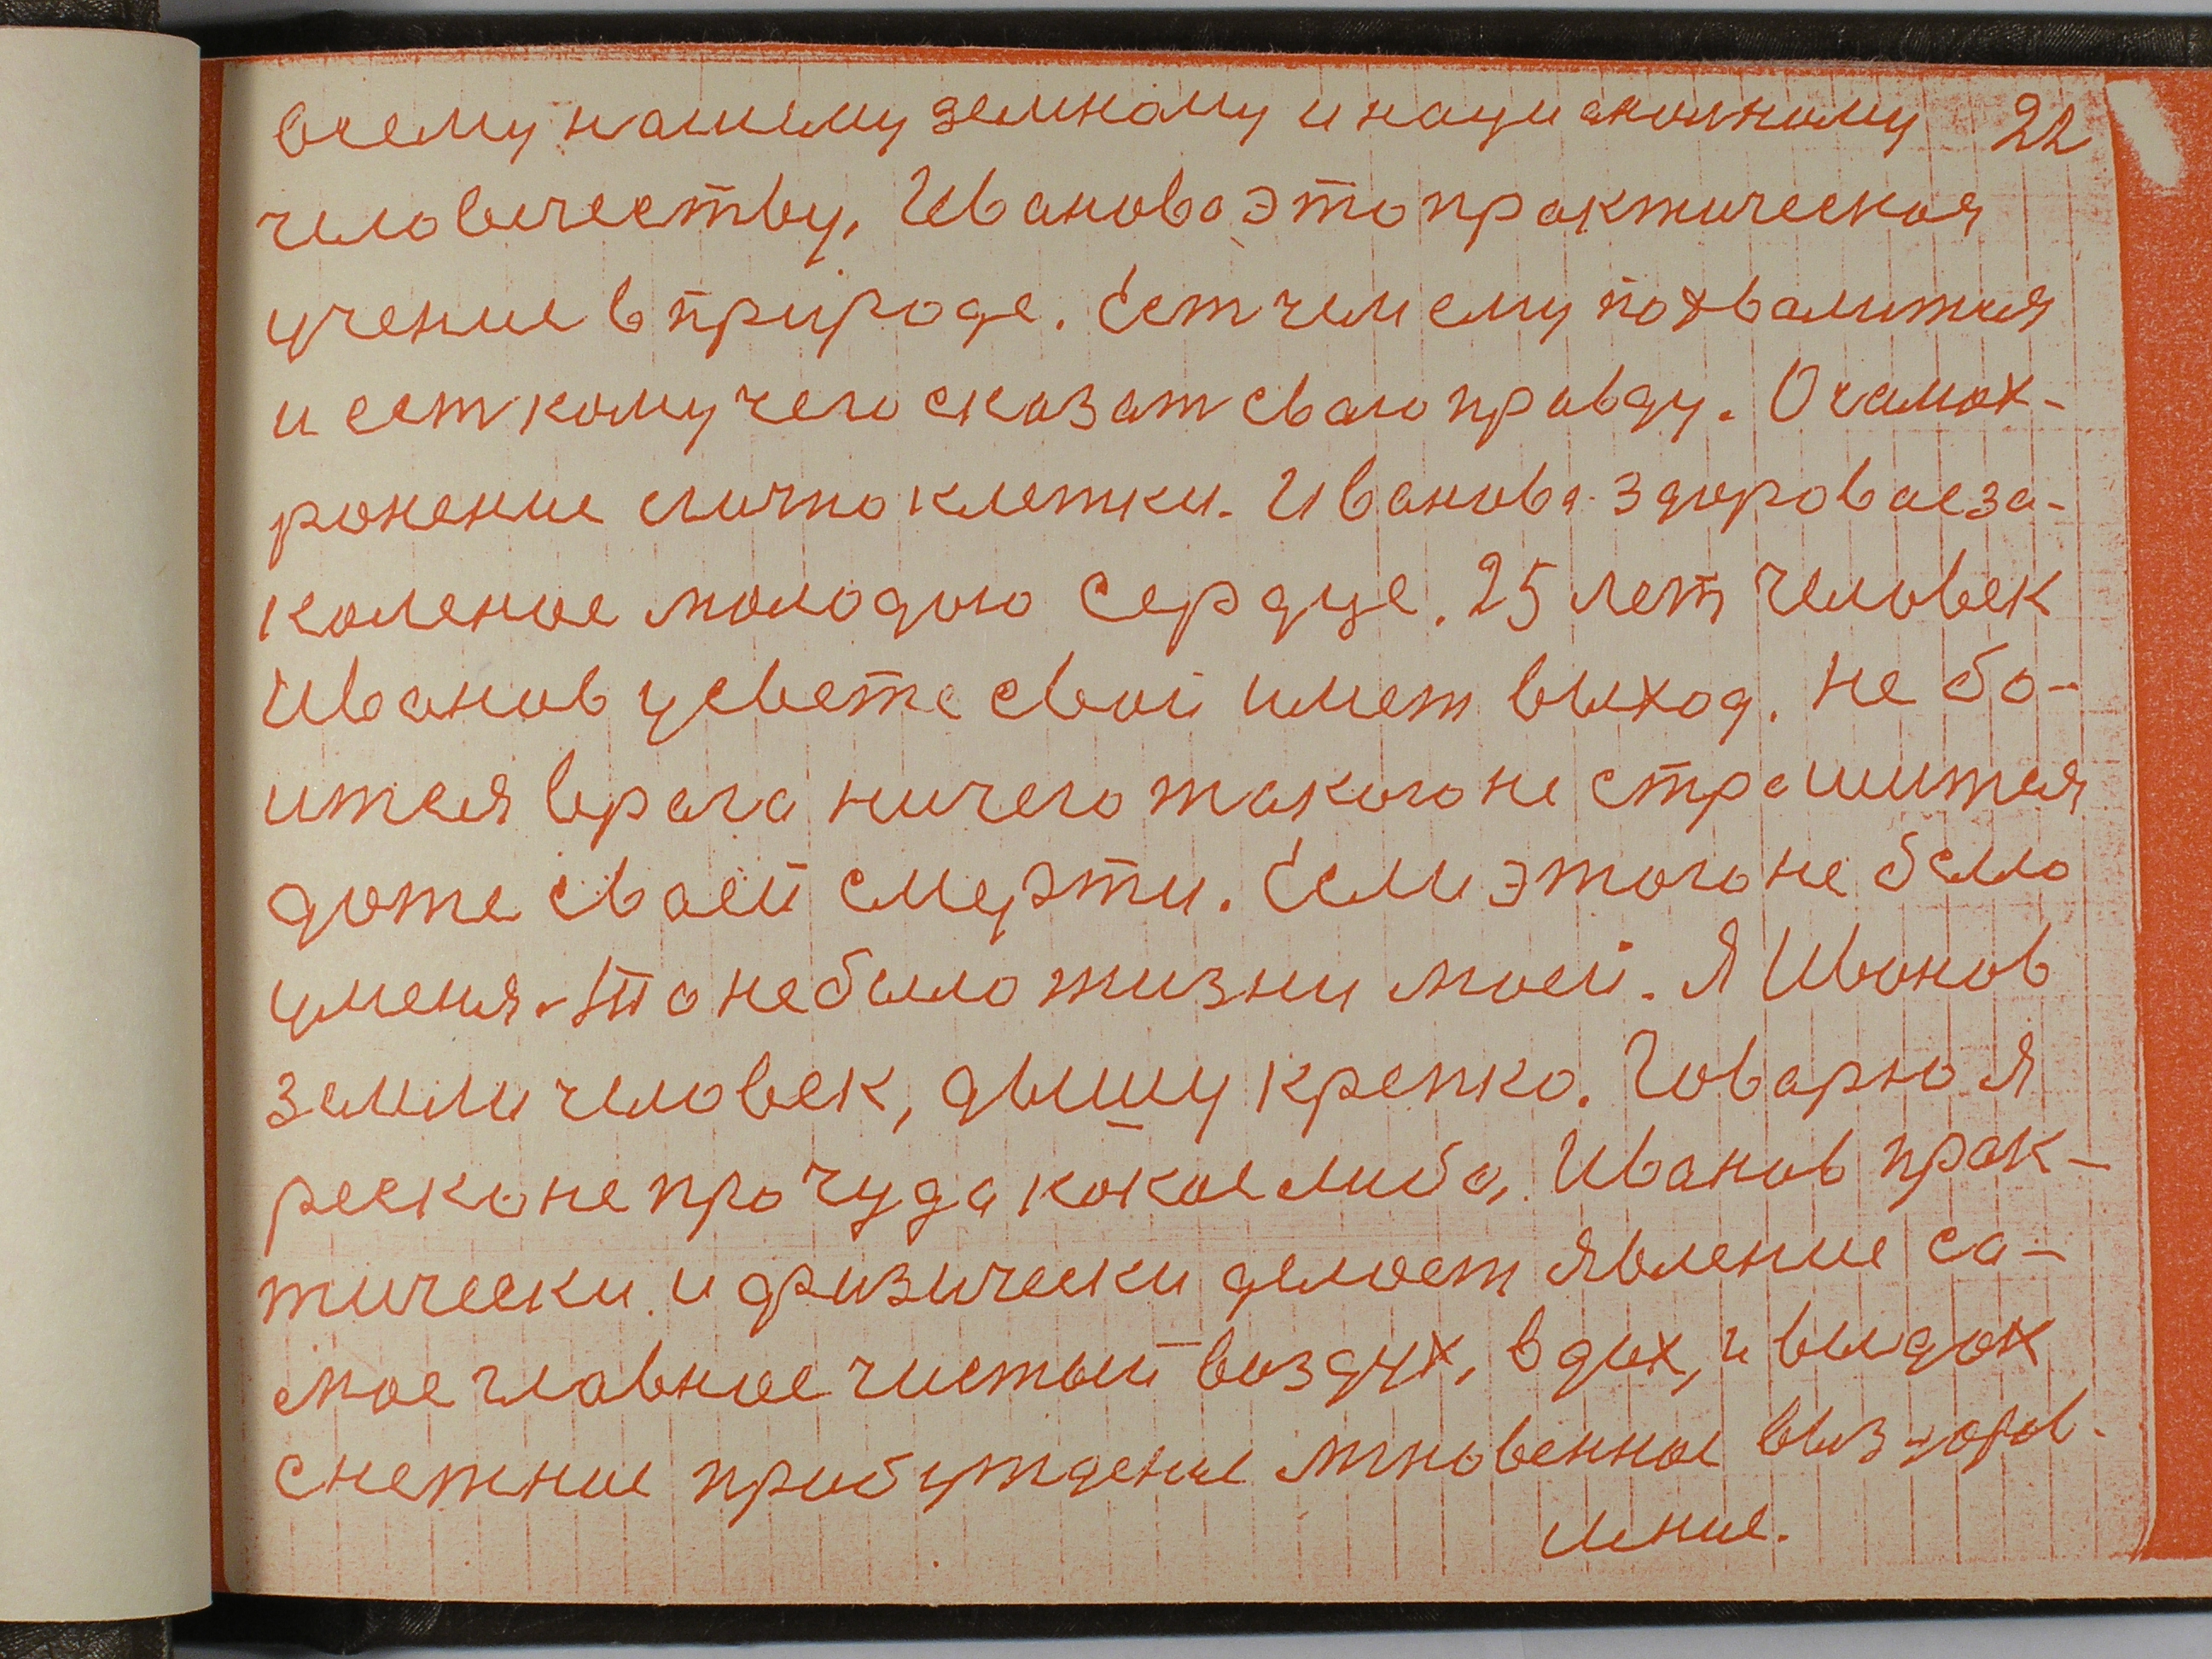 всему нашему земному и национальному 22
человечеству, Иванова это практическая
учение в природе. Ест чем ему похвалится
и ест кому чего сказат сваю правду. О самох-
ронение лично клетки. Иванова здоровае за-
каленае молодою сердце. 25 лет человек
Иванов у свете свой имет выход. Не бо-
ится врага ничего такого не страшится
доже сваей смерти. Если этого не было
уменя. То не было жизни моей. Я Иванов
земли человек, дышу крепко. Говарю я
реско не про чуда кокое либо, Иванов прак-
тически и физически делоет явление са-
мае главнае чистый воздух, вдох, и выдох
снежние пробуждение мгновеннае выздоров-
ление.